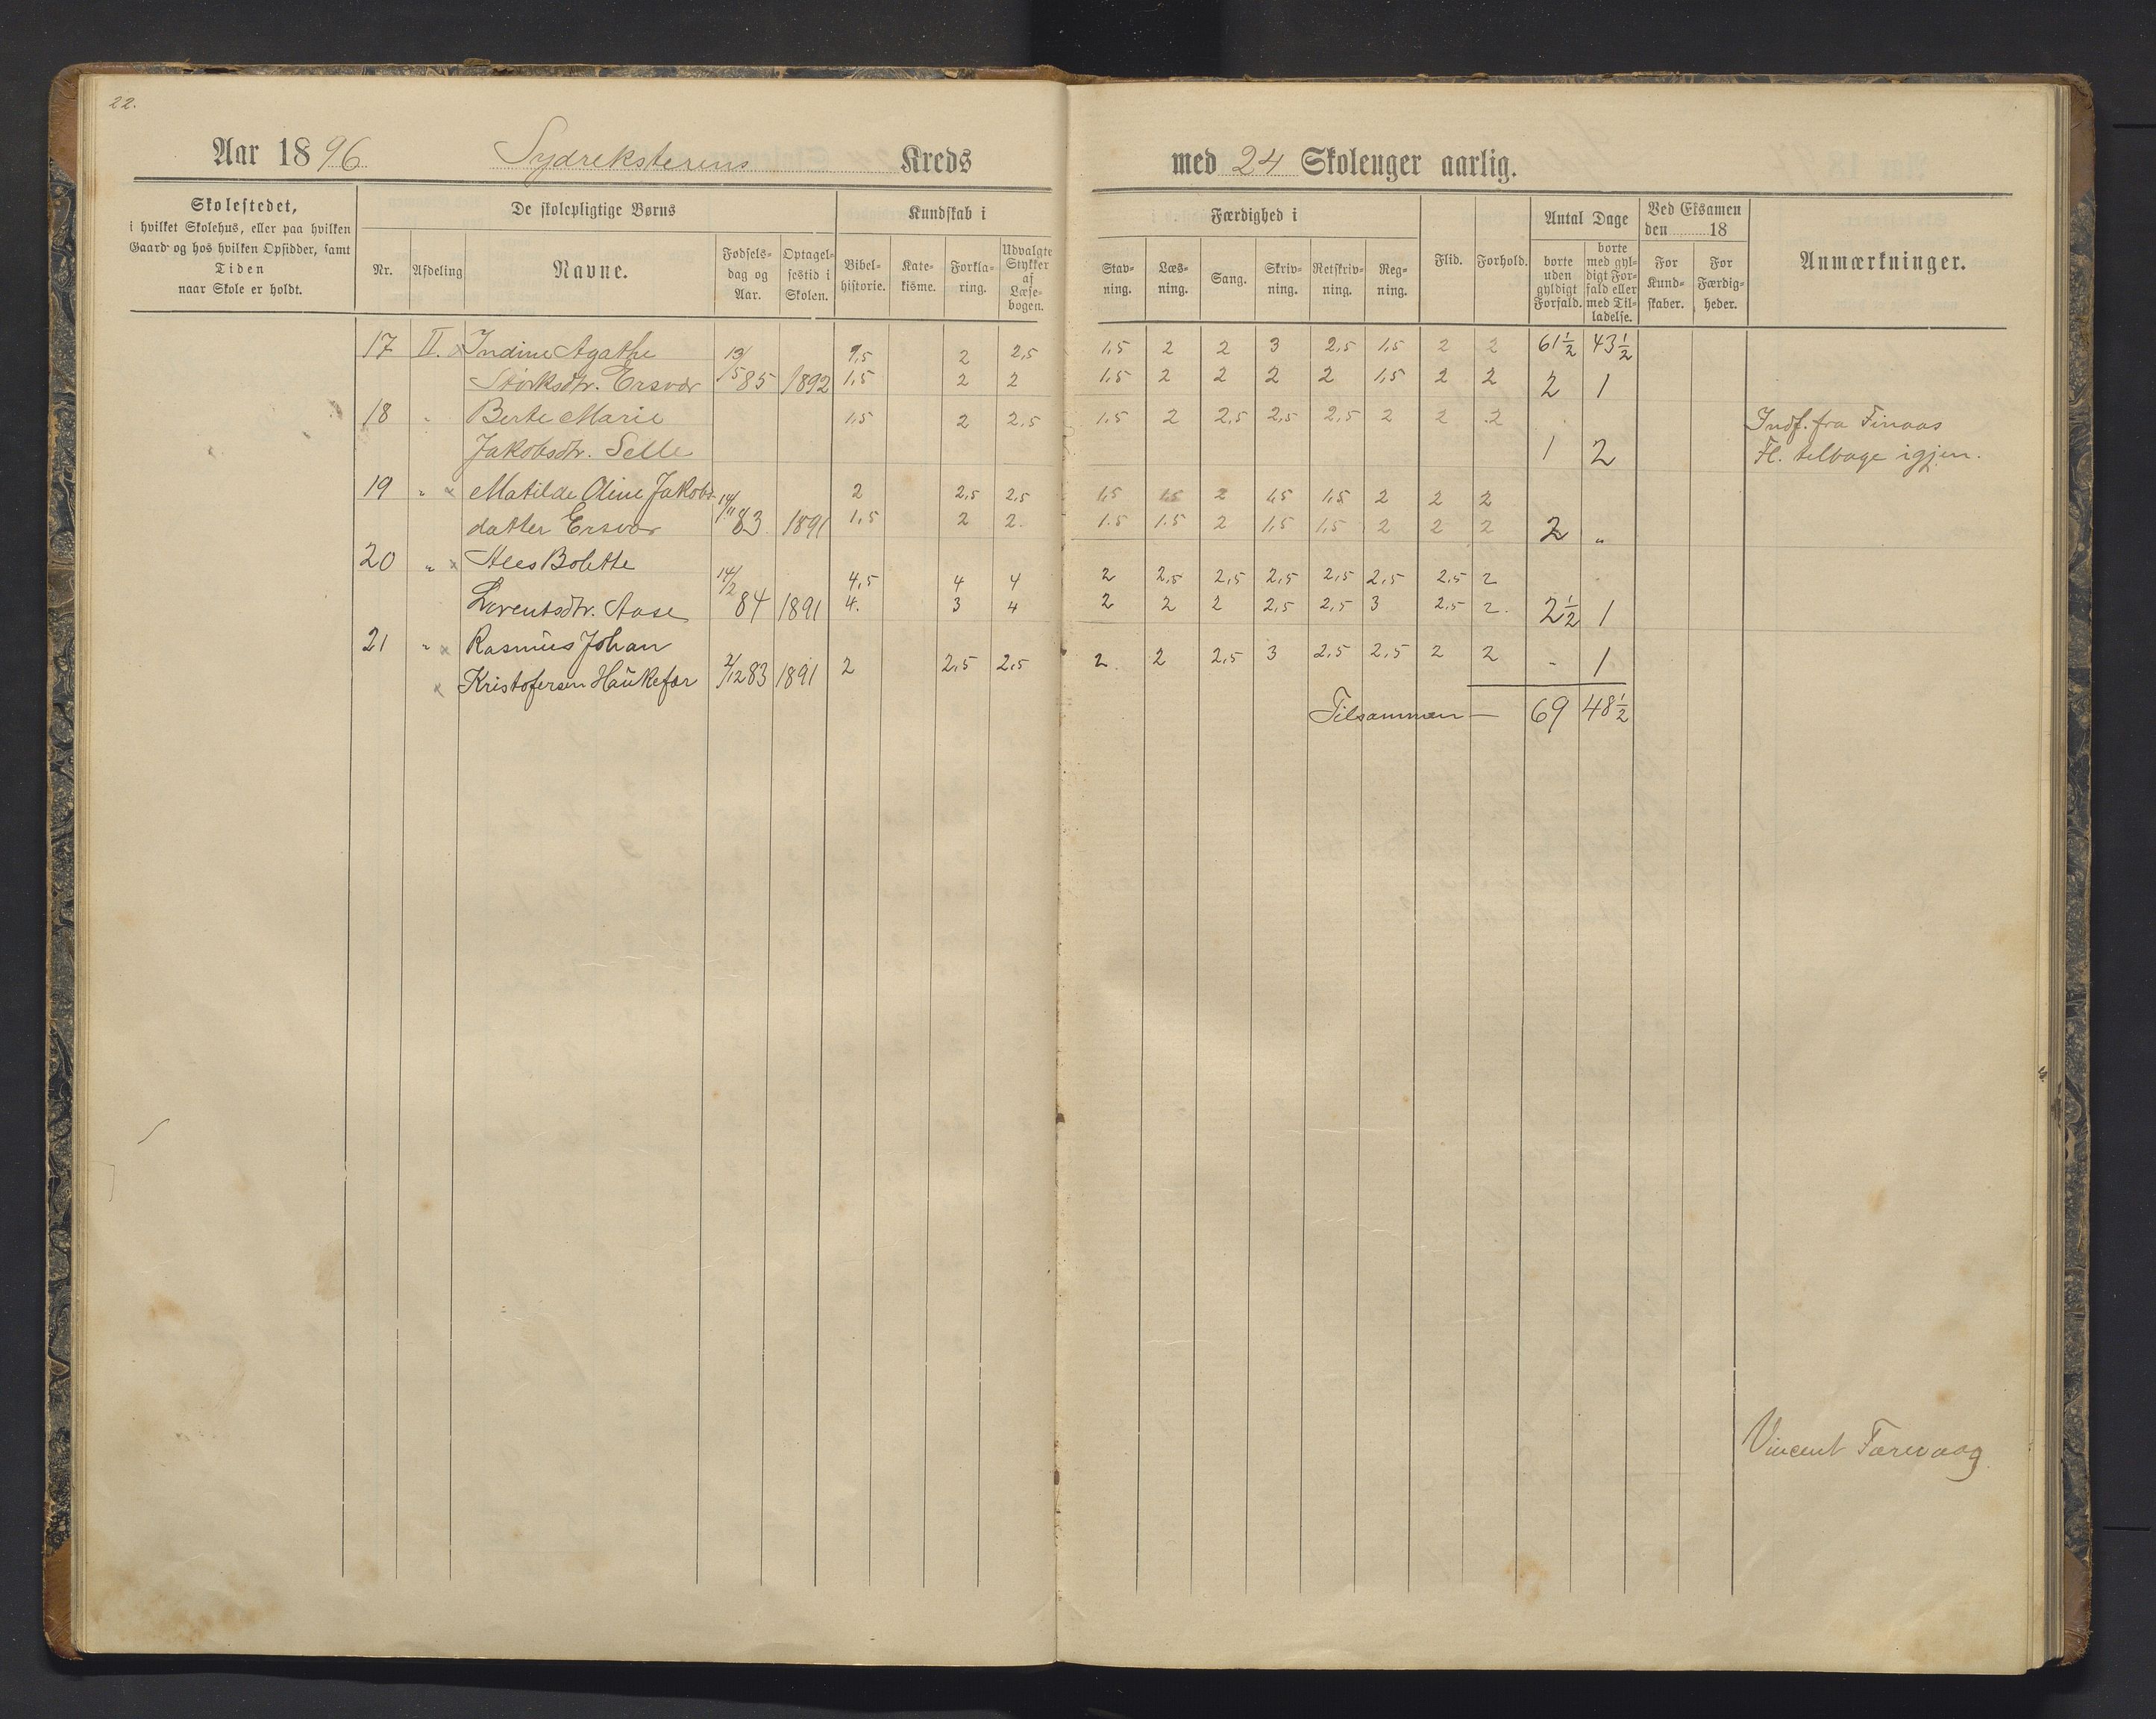 22.
Aar 1896 Sydreksterens Kreds med 24 Skoleuger aarlig.
Skolestedet,
i hvilket Skolehus, eller paa hvilken
Gaard og hos hvilken Opsidder, samt
Tiden
naar Skole er holdt.
De skolepligtige Børns
Nr. Afdeling Navne.
Fødsels-
dag og
Aar.
Optagel-
sestid i
Skolen.
Kundskab i
Bibel-
historie.
Kate-
kisme.
Forkla-
ring.
Udvalgte
Stykker
af
Læse-
bogen.
Færdighed i
Stav-
ning.
Læs-
ning.
Sang.
Skriv-
ning.
Retskriv-
ning.
Reg-
ning.
Flid.
Forhold.
Antal Dage
borte
uden
gyldigt
Forfald.
borte
med gyl-
digt For-
fald eller
med Til-
ladelse.
Ved Eksamen
den 18
For
Kund-
skaber.
For
Færdig-
heder.
Anmærkninger.
17 II. x Indine Agathe 13/ 1,5 2 2,5 1,5 2 2 3 2,5 1,5 2 2 61½ 43½
Størksdtr. Ersvær 5 85 1892 1,5 2 2 1,5 2 2 2 2 1,5 2 2 2 1
18 " Berte Marie 1,5 2 2,5 1,5 2 2,5 2,5 2,5 2 2 2 Indf. fra Finaas
Jakobsdtr. Selle 1 2 Fl. tilbage igjen.
19 " x Matilde Oline Jakobs- 14/ 2 2,5 2,5 1,5 1,5 2 1,5 1,5 2 2 2
datter Ersvær 11 83 1891 1,5 2 2. 1.5 1.5 2 1,5 1,5 2 2 2 2 "
20 " x Alees Bolette 14/2 4,5 4 4 2 2,5 2,5 2,5 2,5 2,5 2,5 2
Lorentsdtr. Aase 84 1891 4. 3 4 2 2 2 2,5 2,5 3 2,5 2. 2½ 1
21 " x Rasmus Johan
x Kristofersen Haukefær 2/12 83 1891 2 2,5 2,5 2. 2 2,5 3 2,5 2,5 2 2 - 1
Tilsammen — 69 48½
Vincent Færevaag